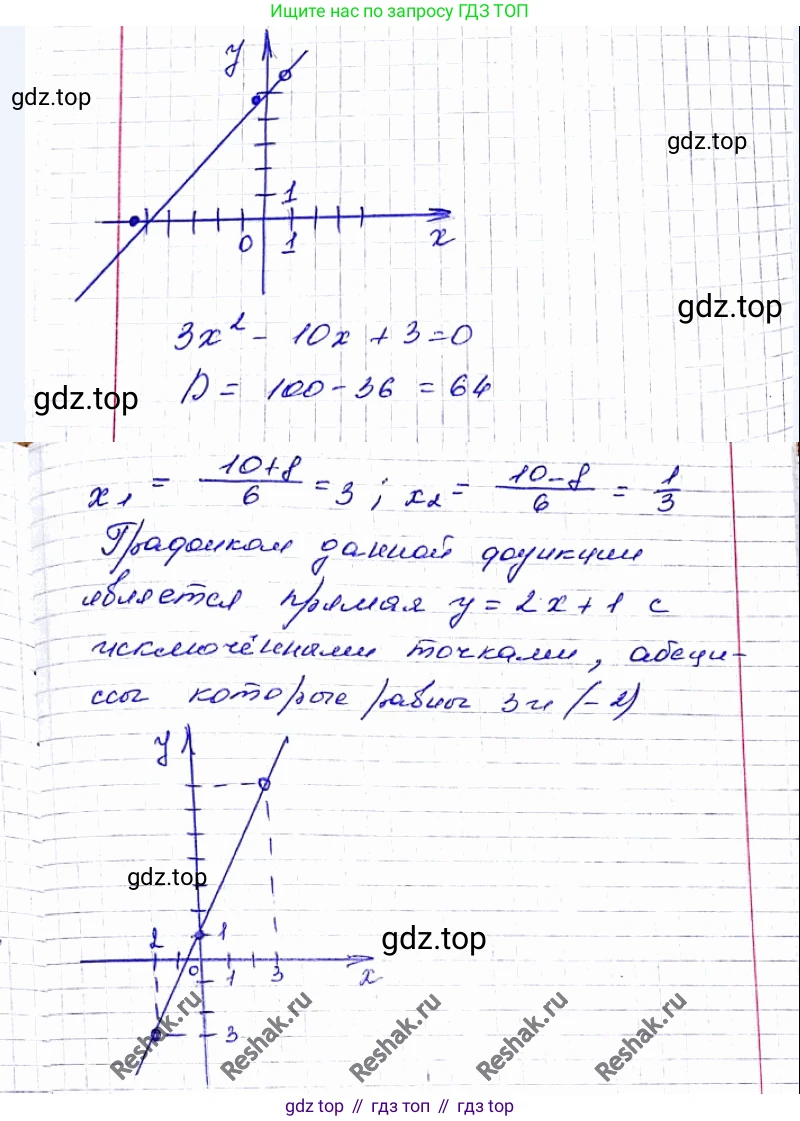 Ищите нас по запросу ГДЗ ТОП
y
gdz.top
gdz.top
1
0 1 x
gdz.top
3x² - 10x + 3 = 0
gdz.top
D = 100 - 36 = 64
x₁ = (10+8)/6 = 3 ; x₂ = (10-8)/6 = 1/3
Графиком данной функции
является прямая y = 2x + 1 с
исключёнными точками, абсци-
ссы которые равны 3 и (-2)
y
gdz.top
2 1
gdz.top
0 1 3 x
3
Reshak.ru Reshak.ru Reshak.ru Reshak.ru Reshak.ru
gdz top // гдз топ // gdz top